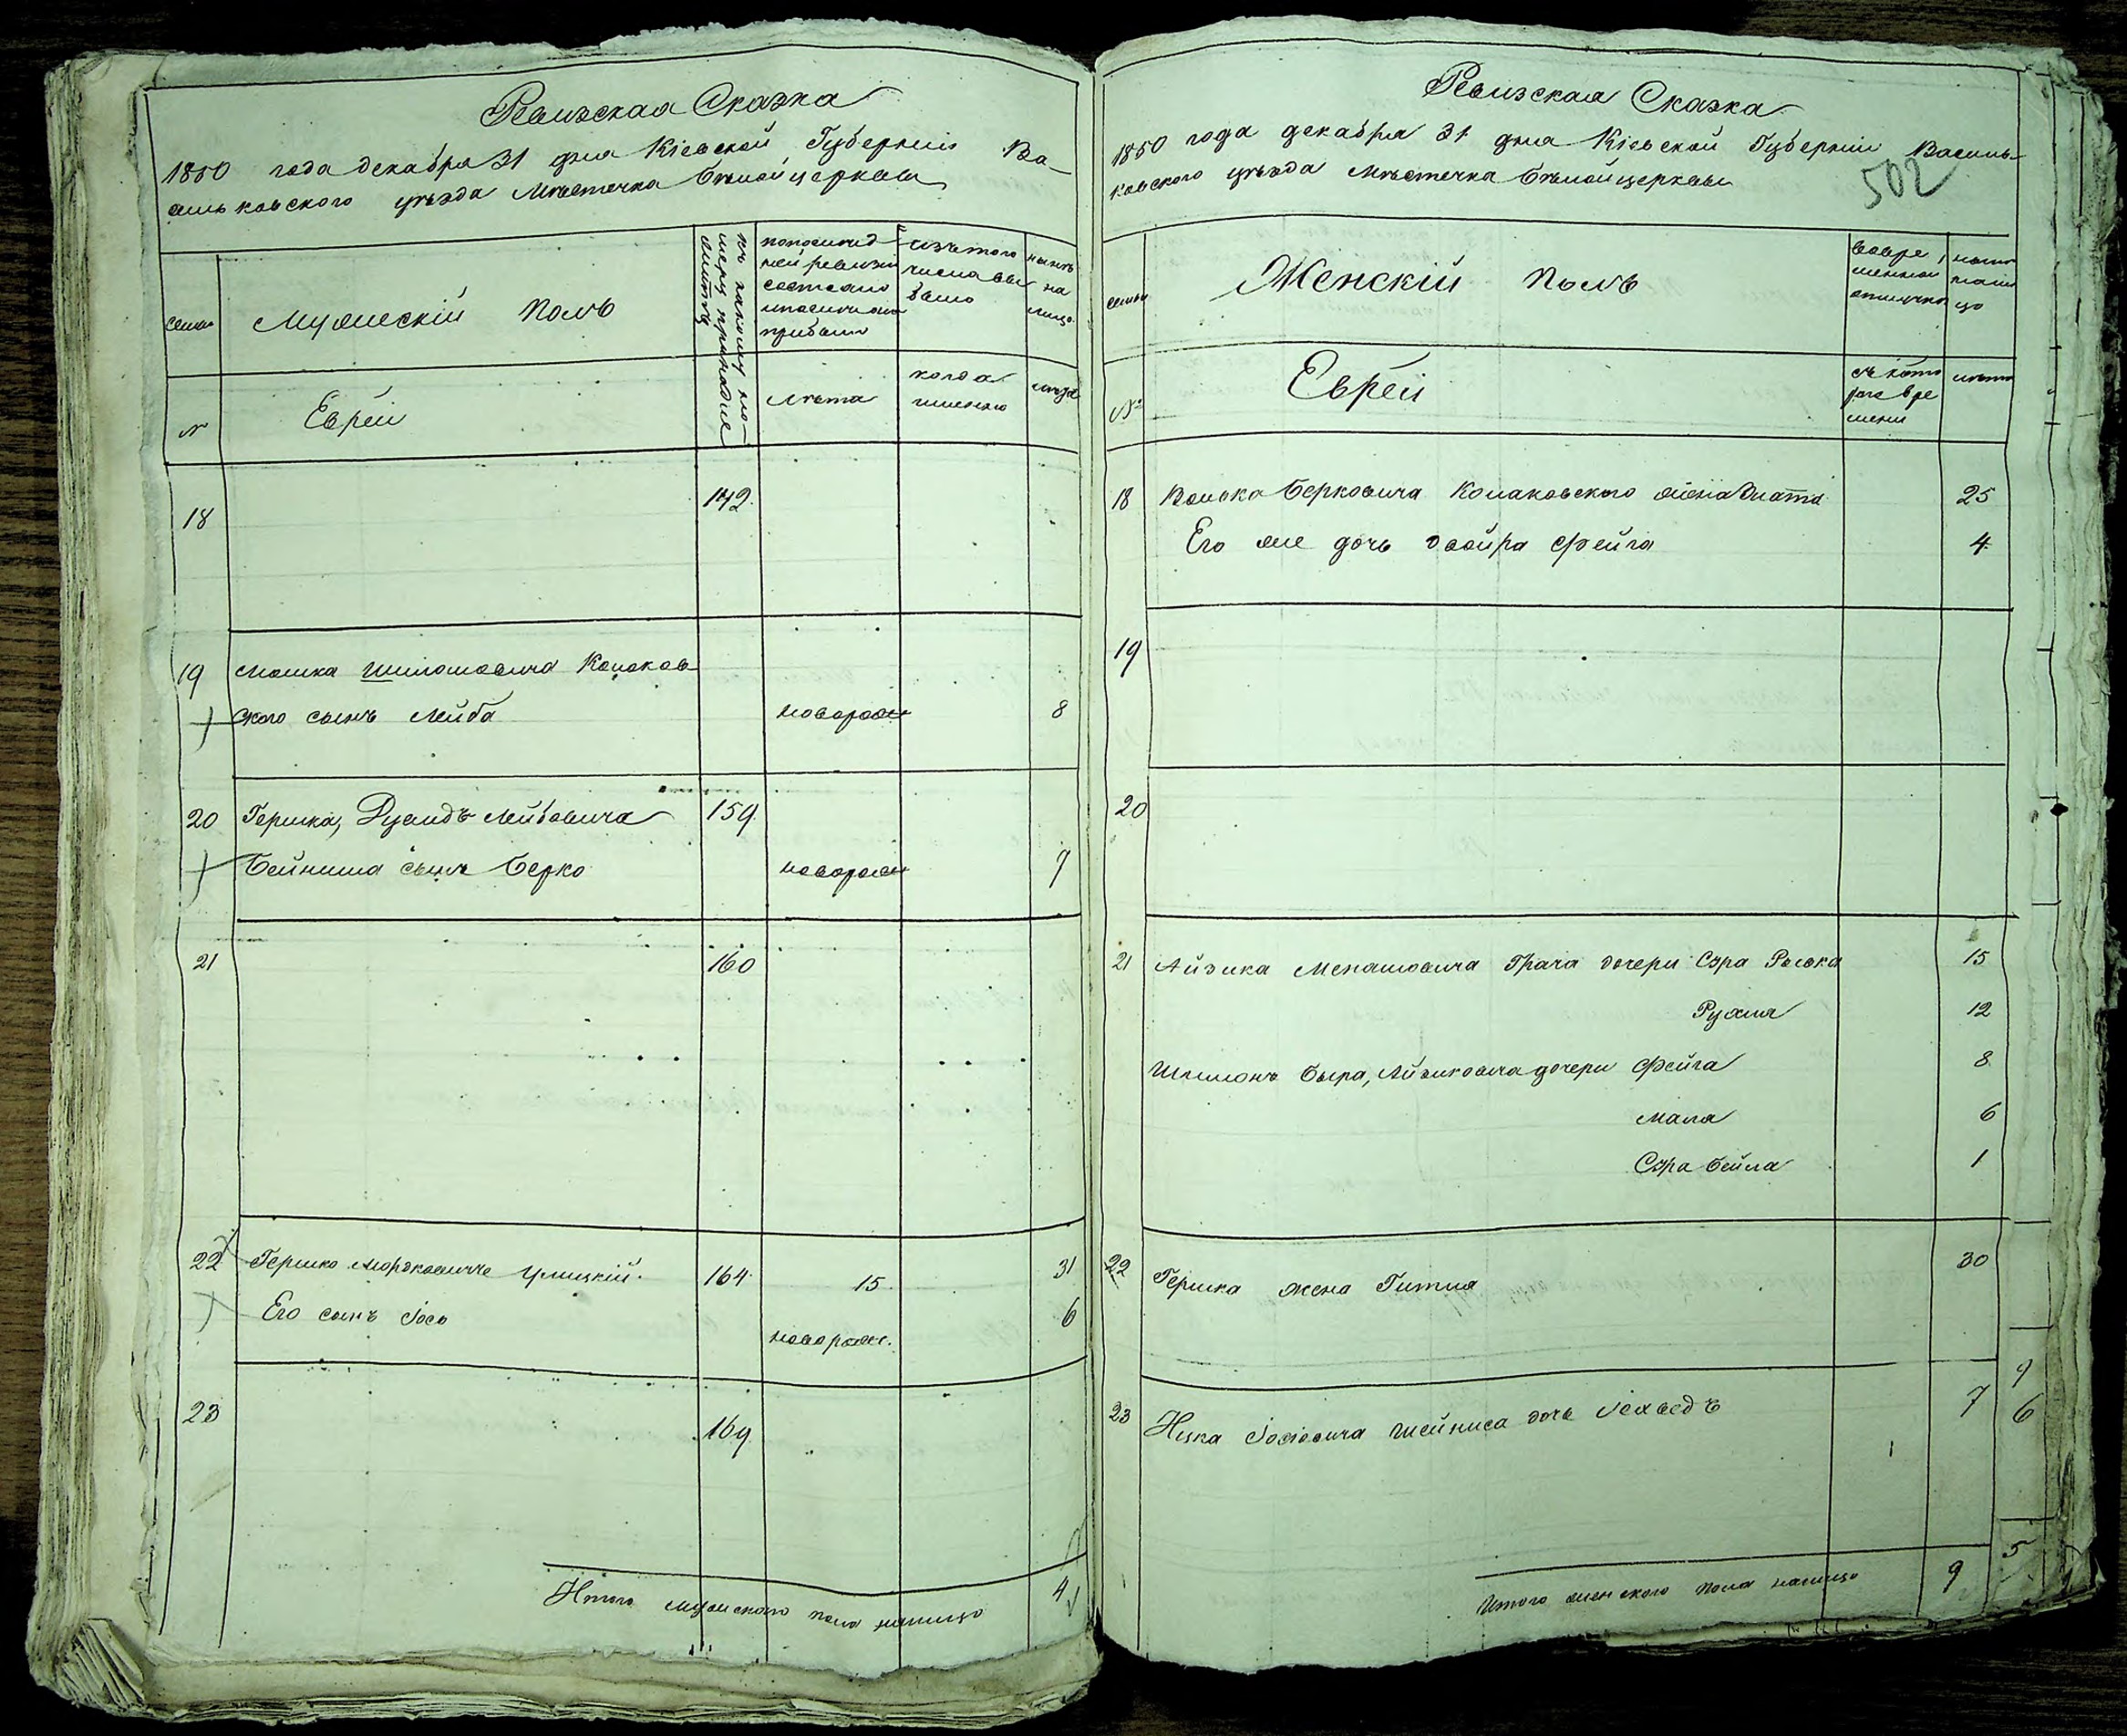 Ревизская Сказка
1850 года декабря 31 дня Кіевской Губерніи Ва-
сильковского уѣзда Мѣстечка Бѣлойцеркви
семьи
Мужескій полъ
нынѣ
на
лицо
изъ того
числа вы
было
№
Евреи
Лѣта
когда
именно
лѣта
18
142.
19 Мошка Шиломовича Конаков-
ского сынъ Лейба новорож 8
20 Гершка, Дувидъ Лейбовича 159
Бейниша сынъ Берко новорож 9
21 160
22 Гершко Мордковичъ Улицкій. 164. 15. 31
Его сынъ Іось новорож. 6
23 169
Итого мужеского пола налицо 4
Ревизская Сказка
1850 года декабря 31 дня Кіевской Губерніи Василь-
ковского уѣзда Мѣстечка Бѣлойцеркви
502
семьи
Женскій полъ
вовре
менной
отлучкѣ
№
Евреи
съ кото
раго вре
мени
лѣта
18 Волька Берковича Конаковского жена Злата 25
Его же дочь Двойра Фейга 4.
19
20
21 Айзика Менашовича Грача дочери Сура Рыська 15
Рухля 12
Шлиомъ Бера, Айзиковича дочери Фейга 8
Мала 6
Сура Бейла 1
22 Гершка жена Гитля 30
23 Ицка Іосіовича Шейниса дочь Іохведъ 7
6
5
Итого женского пола налицо 9